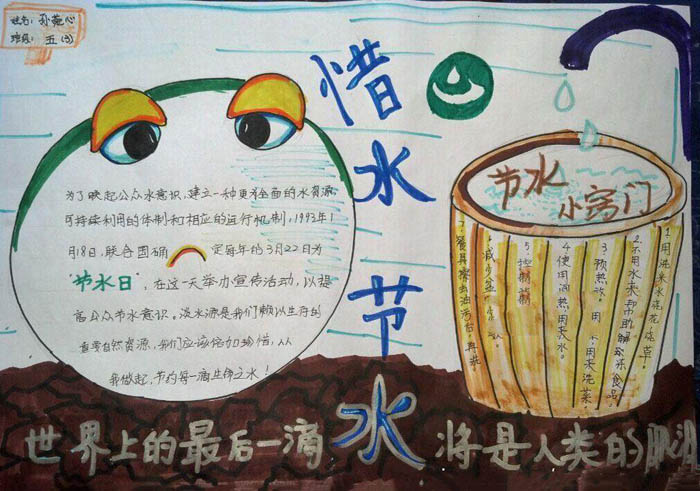 姓名：孙苑心
班级：五（3）
惜水节水
为了唤起公众水意识，建立一种更为全面的水资源
可持续利用的体制和相应的运行机制，1993年1
月18日，联合国确定每年的3月22日为
“节水日”，在这一天举办宣传活动，以提
高公众节水意识。淡水源是我们赖以生存的
重要自然资源，我们应该倍加珍惜，从
我做起，节约每一滴生命之水！
节水
小窍门
1.用洗米水浇花浇草。
2.不用水来帮助解冻食品
3.预热放 用 用来洗菜
4.使用闷热用来水。
5.控制
6.减少盆
7.餐具擦去油污后再洗
世界上的最后一滴水将是人类的眼泪